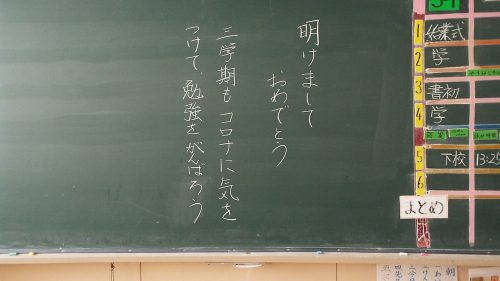 明けまして
おめでとう
三学期もコロナに気を
つけて、勉強をがんばろう
1 始業式
2 学
3 書初
4 学
5 下校 13:25
6
まとめ
朝